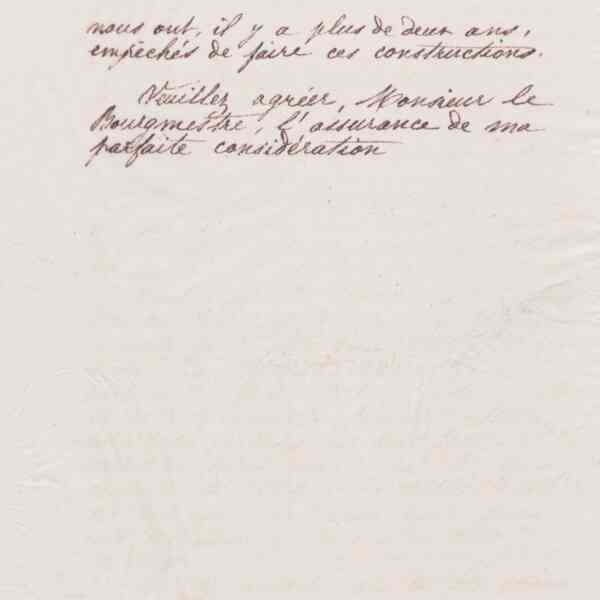 nous ont, il y a plus de deux ans,
empêchés de faire ces constructions.
Veuillez agréer, Monsieur le
Bourgmestre, l'assurance de ma
parfaite considération